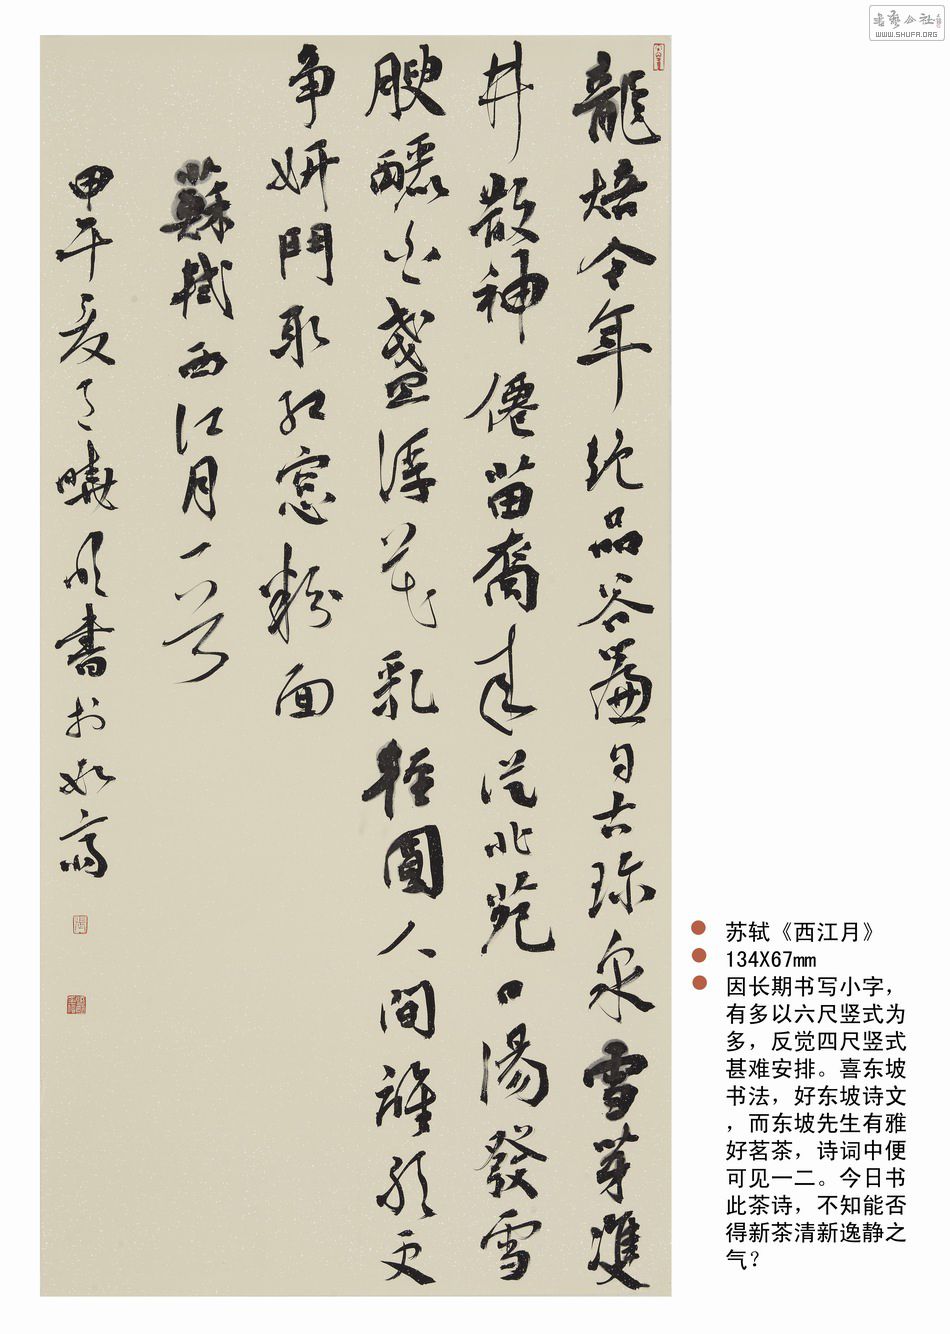 龍焙今年絕品谷簾自古珍泉雪芽雙
井散神僊苗裔来從北苑湯發雪
腴釅白盞浮花乳輕圓人間誰敢更
争妍鬥取紅窓粉面
蘇軾西江月一首
甲午夏曉書於如齋
WWW.SHUFA.ORG
苏轼《西江月》
134X67mm
因长期书写小字，
有多以六尺竖式为
多，反觉四尺竖式
甚难安排。喜东坡
书法，好东坡诗文
，而东坡先生有雅
好茗茶，诗词中便
可见一二。今日书
此茶诗，不知能否
得新茶清新逸静之
气？